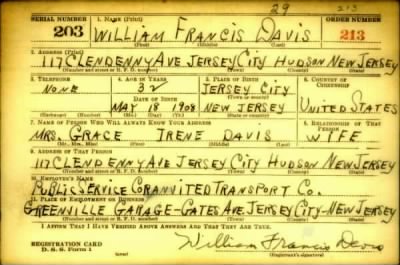 29 213
SERIAL NUMBER 1. NAME (Print) ORDER NUMBER
203 WILLIAM FRANCIS DAVIS 213
(First) (Middle) (Last)
2. ADDRESS (Print)
117 CLENDENNY AVE JERSEY CITY HUDSON NEW JERSEY
(Number and street or R. F. D. number) (Town) (County) (State)
3. TELEPHONE 4. AGE IN YEARS 5. PLACE OF BIRTH 6. COUNTRY OF CITIZENSHIP
NONE 32 JERSEY CITY
DATE OF BIRTH (Town or county)
MAY 18 1908 NEW JERSEY UNITED STATES
(Exchange) (Number) (Mo.) (Day) (Yr.) (State or country)
7. NAME OF PERSON WHO WILL ALWAYS KNOW YOUR ADDRESS 8. RELATIONSHIP OF THAT PERSON
MRS. GRACE IRENE DAVIS WIFE
(Mr., Mrs., Miss) (First) (Middle) (Last)
9. ADDRESS OF THAT PERSON
117 CLENDENNY AVE JERSEY CITY HUDSON NEW JERSEY
(Number and street or R. F. D. number) (Town) (County) (State)
10. EMPLOYER'S NAME
PUBLIC SERVICE TRANSPORT CO.
11. PLACE OF EMPLOYMENT OR BUSINESS
GREENVILLE GARAGE-GATES AVE. JERSEY CITY-NEW JERSEY
(Number and street or R. F. D. number) (Town) (County) (State)
I AFFIRM THAT I HAVE VERIFIED ABOVE ANSWERS AND THAT THEY ARE TRUE.
REGISTRATION CARD William Francis Davis
D. S. S. Form 1 (Registrant's signature)